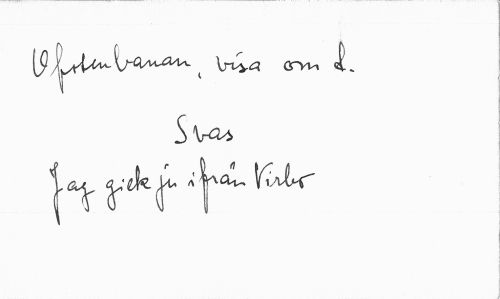 Ofotenbanan, visa om d.
Svas
Jag gick ju ifrån Virbo